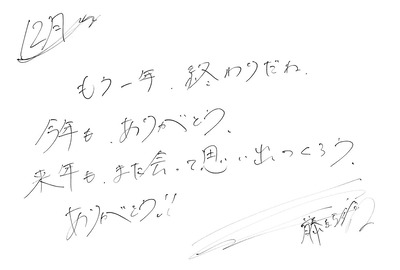 12月
もう一年、終わりだね。
今年も、ありがとう。
来年も、また会って思い出つくろう。
ありがとう!!